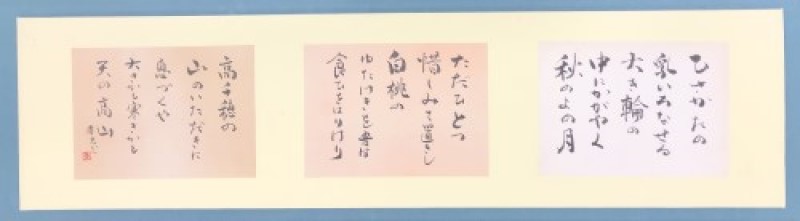 ひさかたの
乳いろなせる
大き輪の
中にかがやく
秋のよの月
ただひとつ
惜しみて置きし
白桃の
ゆたけきを吾は
食ひをはりけり
高千穂の
山のいただきに
息づくや
大きかも寒きかも
天の高山